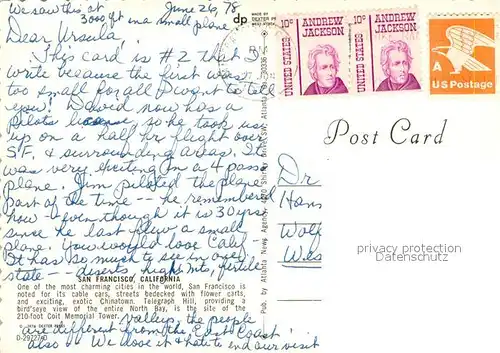 We saw this at June 26, 78
3000 ft in a small plane
Dear Ursula,
This card is #2 that I
write because the first was
too small for all I want to tell
you! David now has a
pilots license, so he took us
up on a half hr flight over
S.F. & surrounding areas. It
was very exciting in a 4 pass
plane. Jim piloted the plane
part of the time -- he remembered
how - even though it is 30 yrs
since he last flew a small
plane. You would love Calif
It has so much to see in one
state -- deserts, high mts, fertile
SAN FRANCISCO, CALIFORNIA
One of the most charming cities in the world, San Francisco is
noted for its cable cars, streets bedecked with flower carts,
and exciting, exotic Chinatown. Telegraph Hill, providing a
bird'seye view of the entire North Bay, is the site of the
210-foot Coit Memorial Tower.
D-29727-D
valleys. the people
are different from the East Coast
also. We love it & hate to end our visit
dp
Pub. by Atlanta News Agency,
UNITED STATES
10¢ ANDREW
JACKSON
UNITED STATES
10¢ ANDREW
JACKSON
A
US Postage
Post Card
Dr
privacy protection
Datenschutz